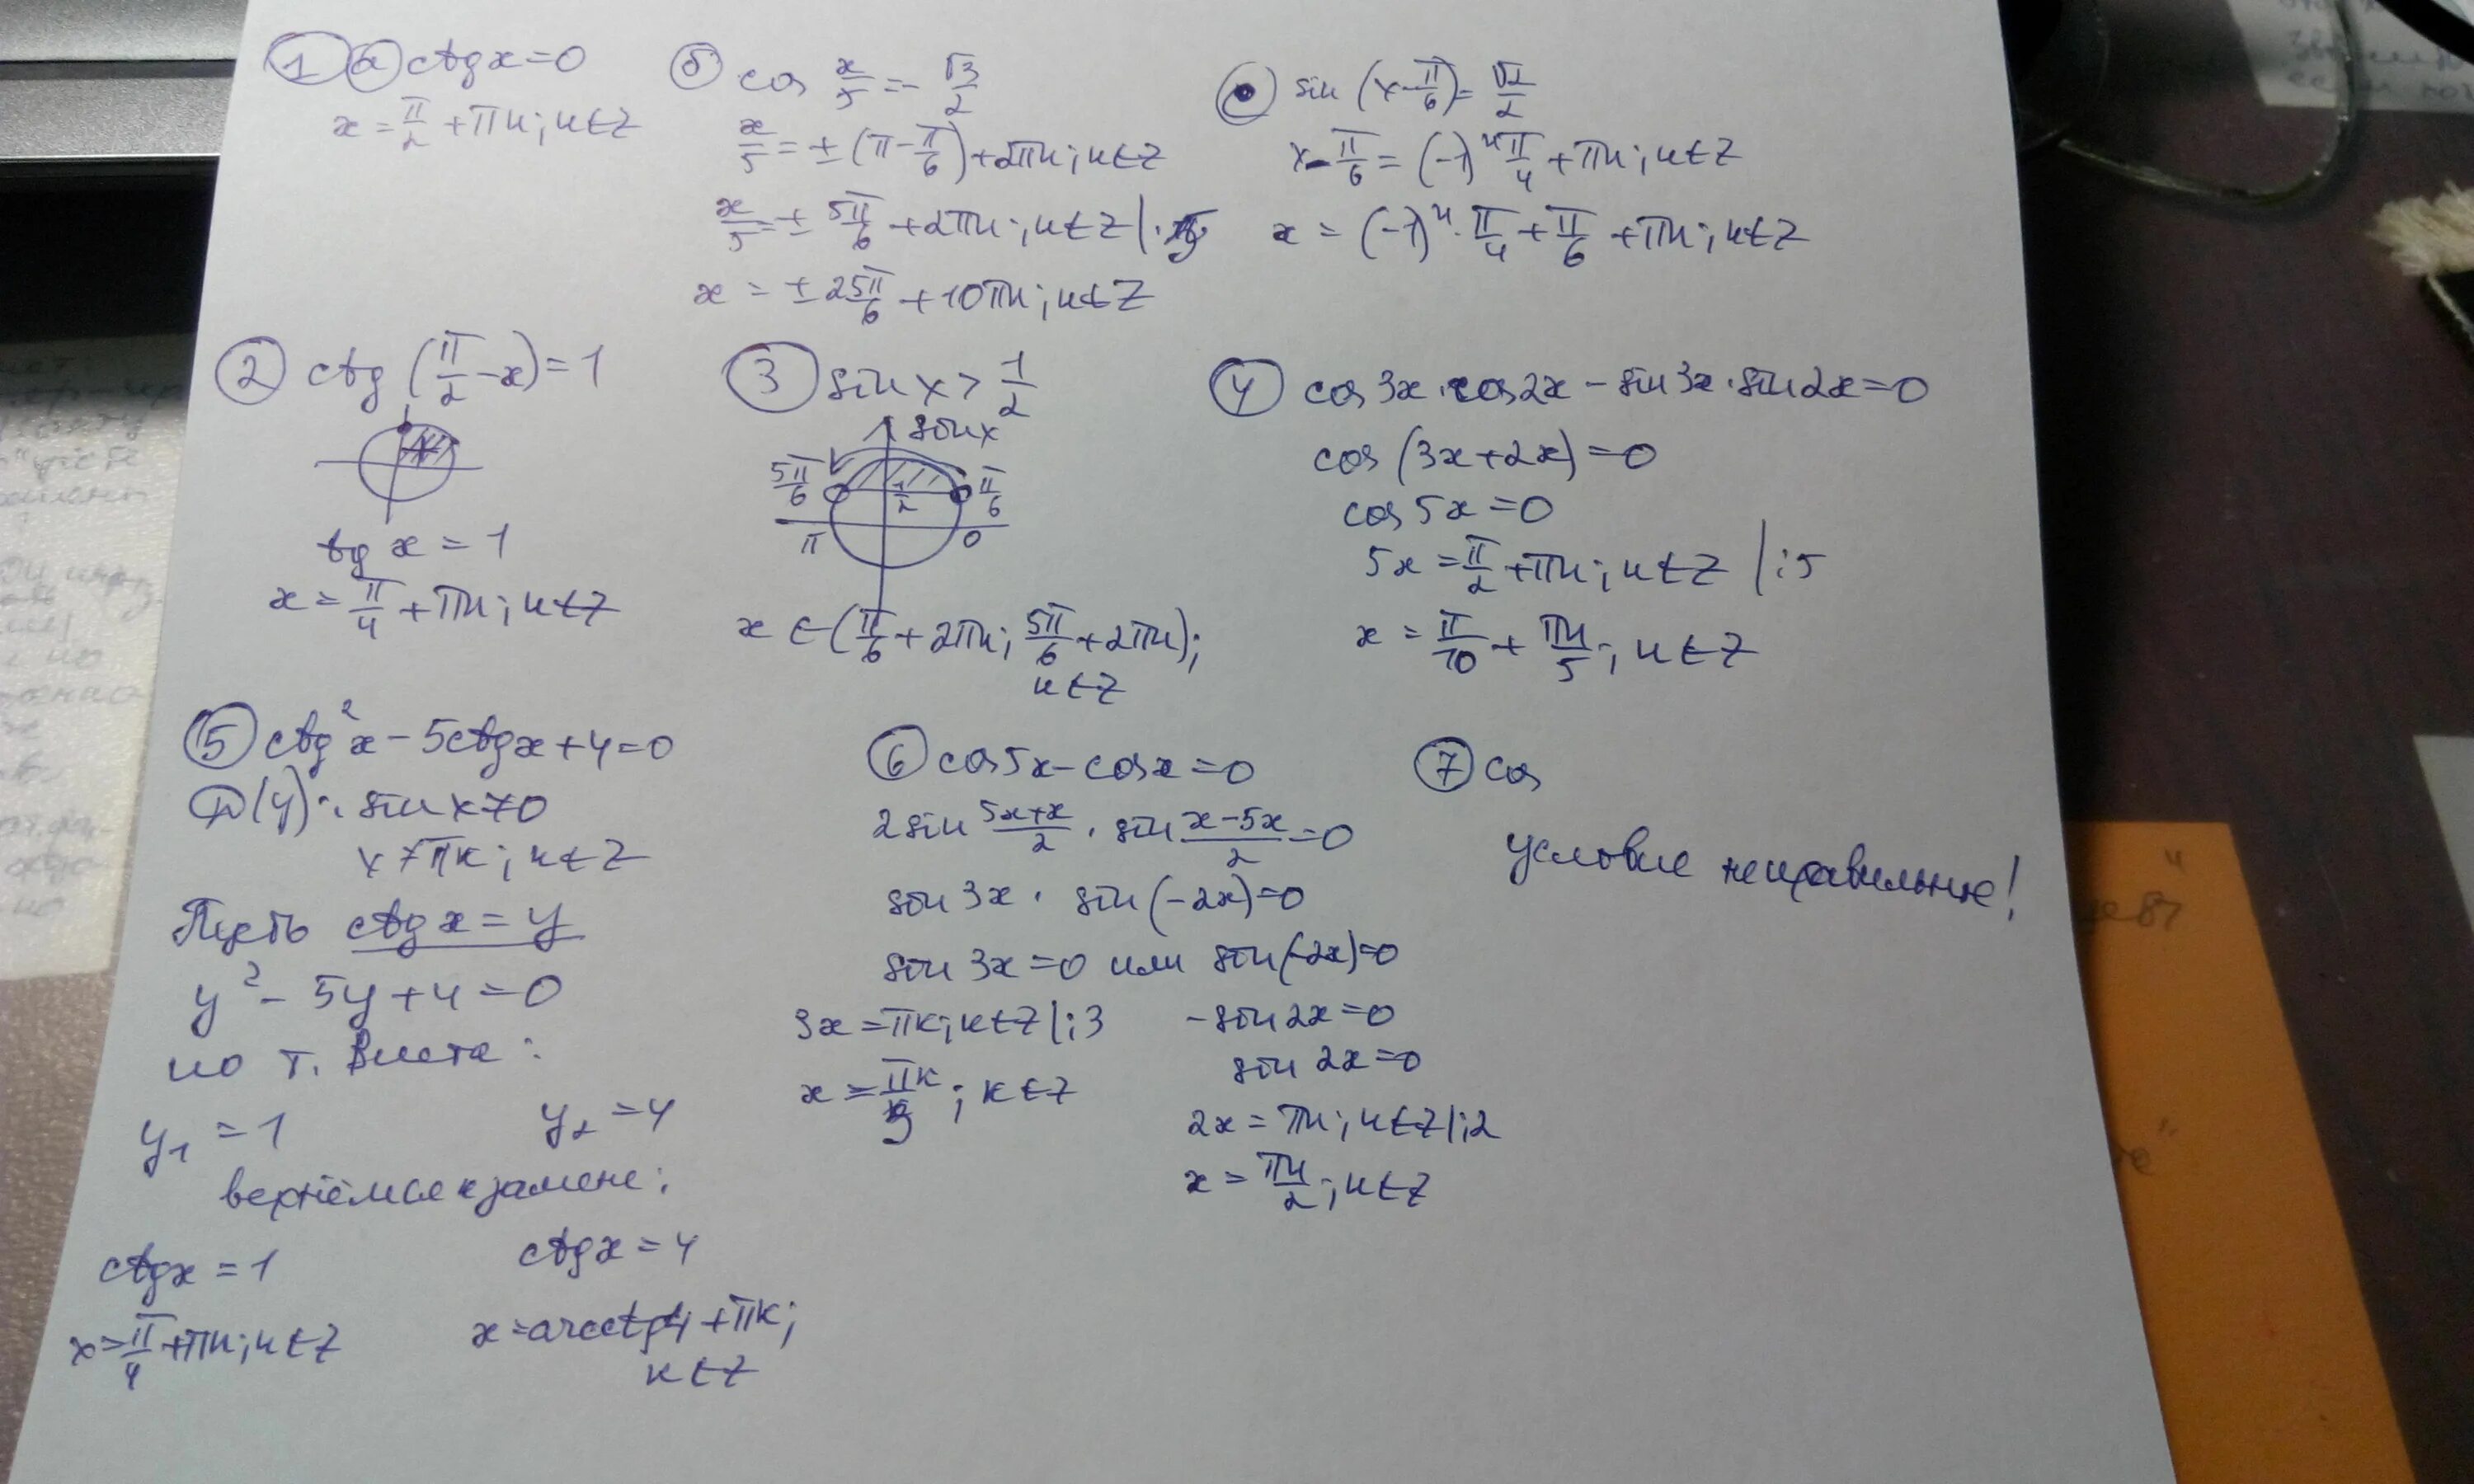 1 а ctgx=0
x = π/2 + πn; n∈Z
б cos x/5 = -√3/2
x/5 = ±(π - π/6) + 2πn; n∈Z
x/5 = ± 5π/6 + 2πn; n∈Z |·5
x = ± 25π/6 + 10πn; n∈Z
sin (x - π/6) = √2/2
x - π/6 = (-1)ⁿ π/4 + πn; n∈Z
x = (-1)ⁿ · π/4 + π/6 + πn; n∈Z
2 ctg (π/2 - x) = 1
tg x = 1
x = π/4 + πn; n∈Z
3 sin x > 1/2
sin x
5π/6 1/2 π/6
π 0
x ∈ (π/6 + 2πn; 5π/6 + 2πn);
n∈Z
4 cos 3x · cos 2x - sin 3x · sin 2x = 0
cos (3x+2x) = 0
cos 5x = 0
5x = π/2 + πn; n∈Z |:5
x = π/10 + πn/5; n∈Z
5 ctg²x - 5ctgx + 4 = 0
D(y): sin x ≠ 0
x ≠ πк; к∈Z
Пусть ctg x = y
y² - 5y + 4 = 0
по т. Виета:
y₁ = 1 y₂ = 4
вернёмся к замене:
ctgx = 1 ctgx = 4
x = π/4 + πn; n∈Z x = arcctg4 + πк;
к∈Z
6 cos5x - cosx = 0
2 sin 5x+x/2 · sin x-5x/2 = 0
sin 3x · sin (-2x) = 0
sin 3x = 0 или sin(-2x) = 0
3x = πк; к∈Z |:3 -sin 2x = 0
x = πк/3; к∈Z sin 2x = 0
2x = πn; n∈Z |:2
x = πn/2; n∈Z
7 cos
условие неправильное!